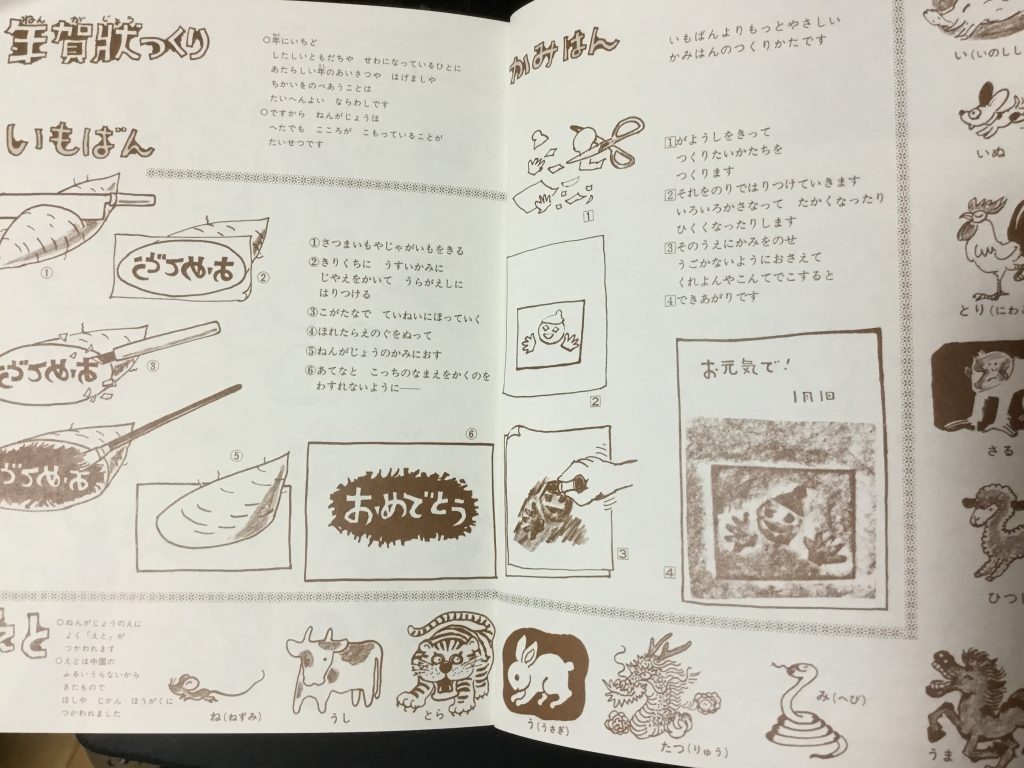 年賀状つくり
ねん が じょう
○年にいちど
したしいともだちや せわになっているひとに
あたらしい年のあいさつや はげましや
ちかいをのべあうことは
たいへんよい ならわしです
○ですから ねんがじょうは
へたでも こころが こもっていることが
たいせつです
いもばん
①
②
③
⑤
⑥
おめでとう
①さつまいもやじゃがいもをきる
②きりくちに うすいかみに
じやえをかいて うらがえしに
はりつける
③こがたなで ていねいにほっていく
④ほれたらえのぐをぬって
⑤ねんがじょうのかみにおす
⑥あてなと こっちのなまえをかくのを
わすれないように――
かみはん
いもばんよりもっとやさしい
かみはんのつくりかたです
1がようしをきって
つくりたいかたちを
つくります
2それをのりではりつけていきます
いろいろかさなって たかくなったり
ひくくなったりします
3そのうえにかみをのせ
うごかないようにおさえて
くれよんやこんてでこすると
4できあがりです
1
2
3
4
お元気で!
1月1日
えと
○ねんがじょうのえに
よく「えと」が
つかわれます
○えとは中国の
ふるいうらないから
きたもので
ほしや じかん ほうがくに
つかわれました
ね(ねずみ)
うし
とら
う(うさぎ)
たつ(りゅう)
み(へび)
うま
ひつじ
さる
とり(にわ
いぬ
い(いのしし